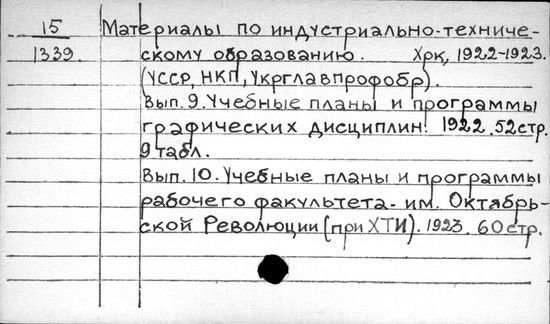 15 Материалы по индустриально-техниче-
1339. скому образованию. Хрк, 1922-1923.
(УССР, НКП, Укрглавпрофобр).
Вып. 9. Учебные планы и программы
графических дисциплин. 1922. 52 стр.
9 табл.
Вып. 10. Учебные планы и программы
рабочего факультета им. Октябрь-
ской Революции (при ХТИ). 1923. 60 стр.